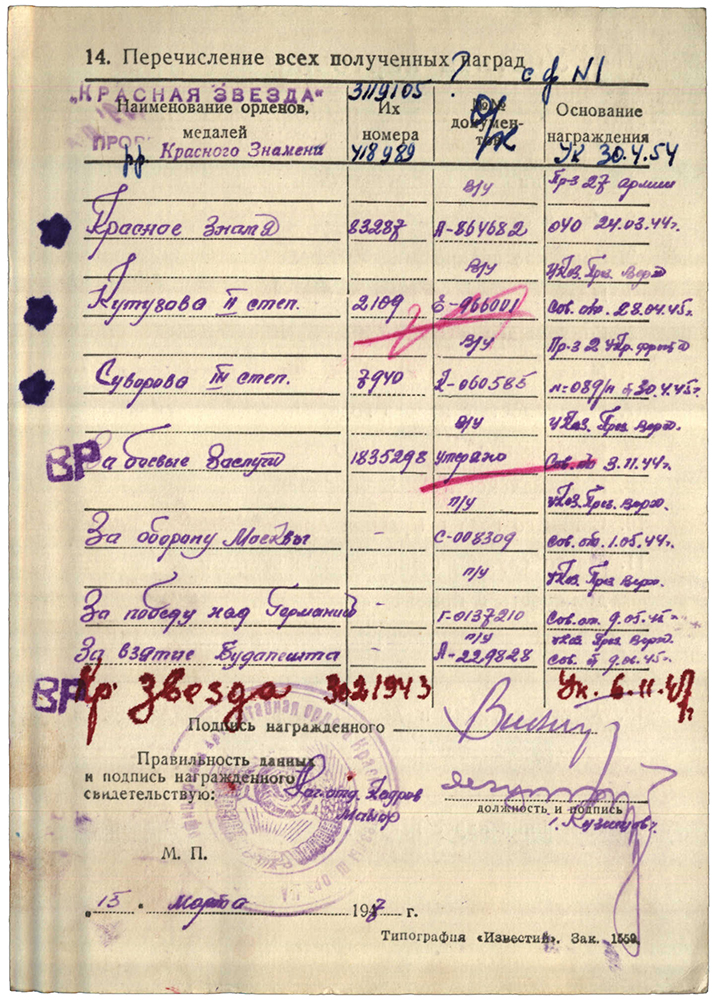 14. Перечисление всех полученных наград
с ф N1
„КРАСНАЯ ЗВЕЗДА“ 3119105
Наименование орденов, медалей
Их номера
№№ документов
Основание награждения
Красного Знамени 418989 о/к Ук 30.4.54
в/у Пр-з 27 армии
Красное Знамя 83287 А-864682 040 24.03.44г.
в/у Указ. През. Верх.
Кутузова II степ. 2109 Е-966011 Сов. от. 28.04.45г.
в/у Пр-з 2 Укр. фронта
Суворова III степ. 7940 060585 н=089/н 30.4.45г.
в/у Указ. През. Верх.
ВР За боевые заслуги 1835298 утеряно Сов. от 9.11.44г.
п/у Указ. През. Верх.
За оборону Москвы - С-008309 Сов. от. 1.05.44г.
п/у Указ. През. Верх.
За победу над Германией - Г-0137210 Сов. от. 9.05.45г.
п/у Указ. През. Верх.
За взятие Будапешта - А-229828 Сов. от 9.06.45г.
ВР Кр. Звезда 3021943 Ук. 6.11.47г.
Подпись награжденного
Правильность данных
и подпись награжденного
свидетельствую:
Нач. отд. Кадров
Майор
должность и подпись
М. П.
„15“ Марта 1947 г.
Типография «Известий». Зак. 1559